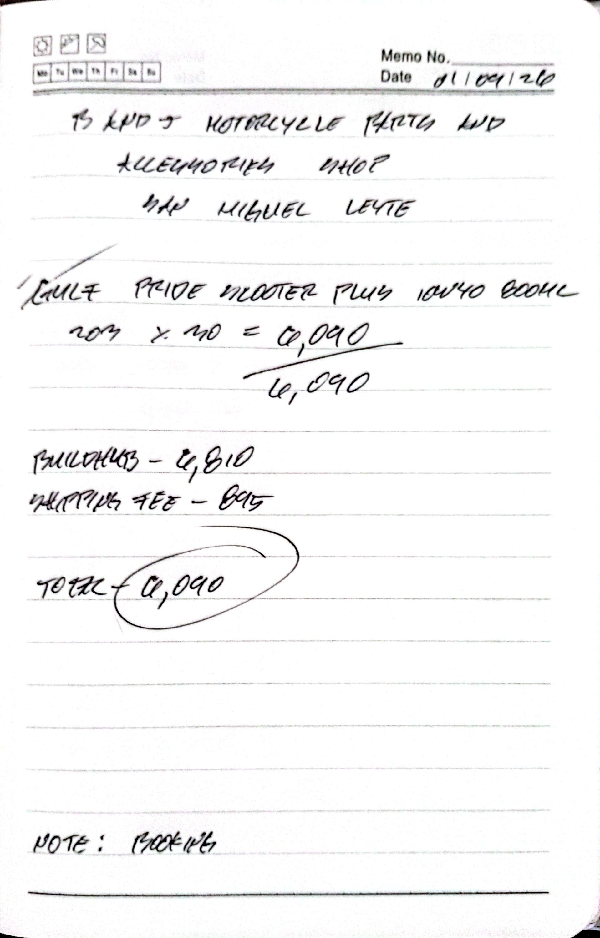 Memo No.
Mo Tu We Th Fr Sa Su
Date 01/09/26
B AND J MOTORCYCLE PARTS AND
ACCESSORIES SHOP
SAN MIGUEL LEYTE
GULF PRIDE SCOOTER PLUS 10W40 800ML
203 x 30 = 6,090
6,090
BUILDHUB - 6,810
SHIPPING FEE - 895
TOTAL - 6,090
NOTE: BOOKING